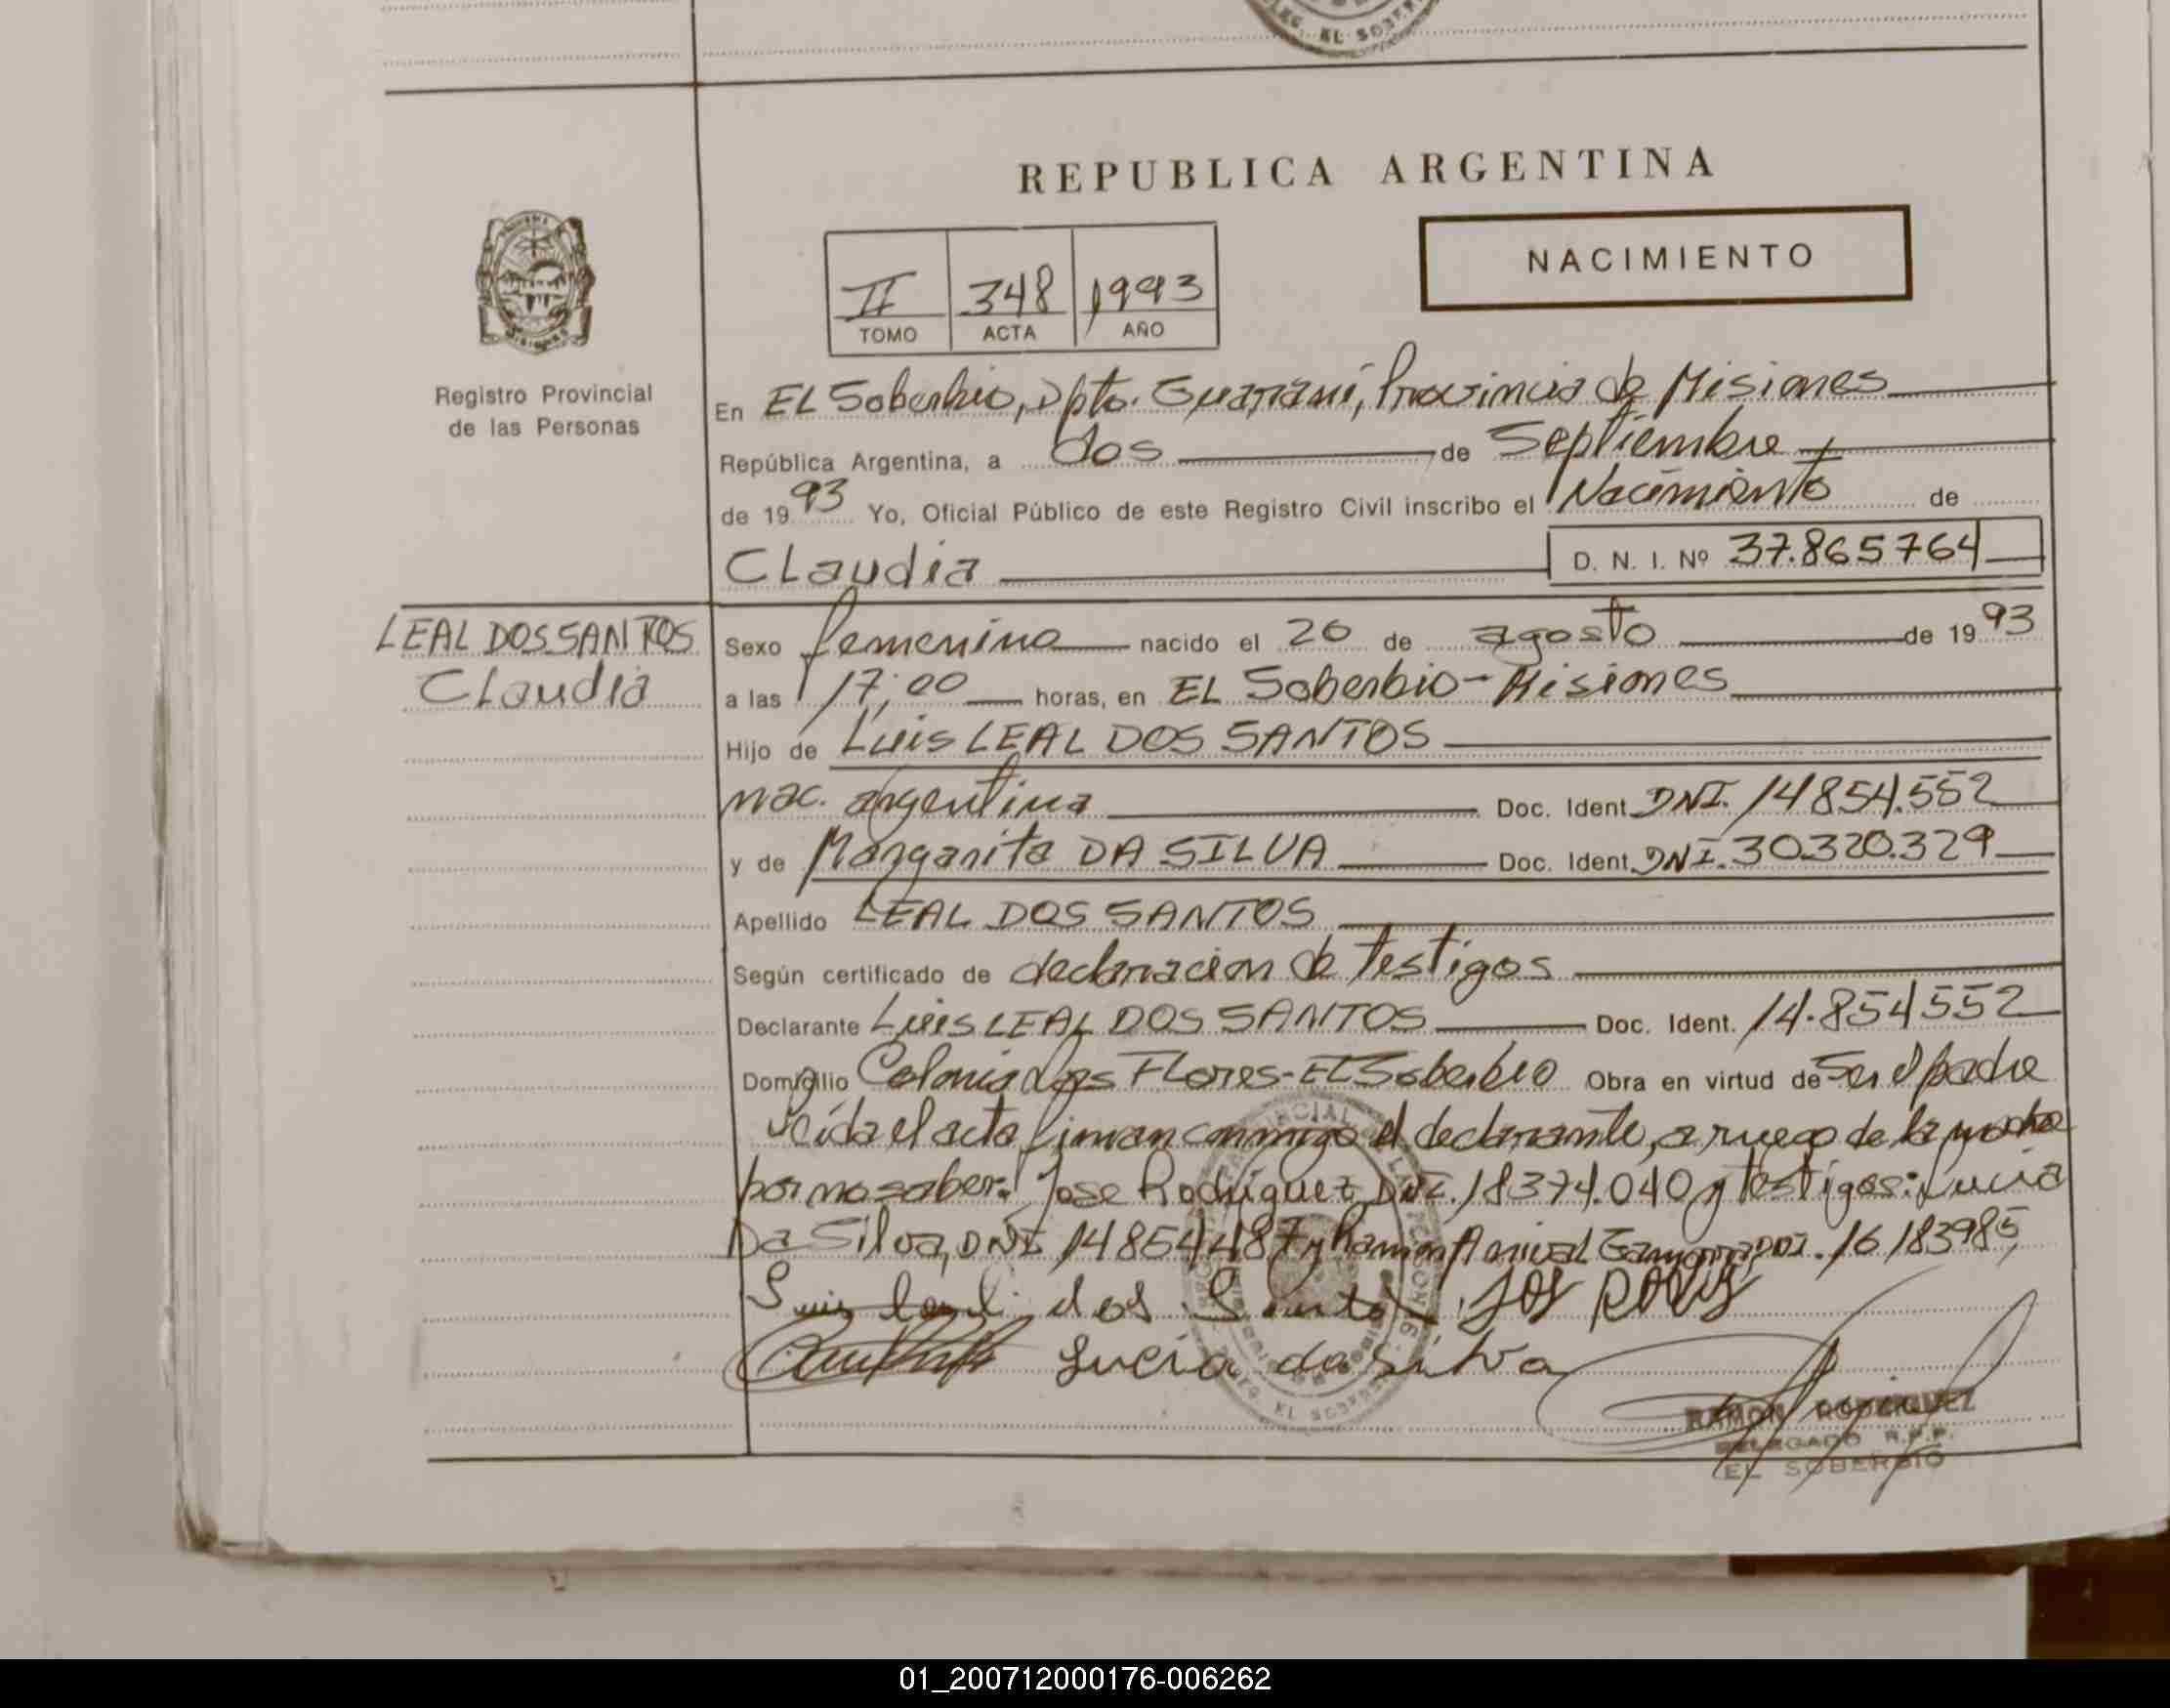 EL SOBER
REPUBLICA ARGENTINA
NACIMIENTO
II 348 1993
TOMO ACTA AÑO
MISIONES
Registro Provincial
de las Personas
En EL Soberbio, Dpto. Guaraní, Provincia de Misiones
República Argentina, a dos de Septiembre
de 1993 Yo, Oficial Público de este Registro Civil inscribo el Nacimiento de
Claudia D. N. I. Nº 37.865764
LEAL DOS SANTOS
Claudia
Sexo femenino nacido el 26 de agosto de 1993
a las 17;00 horas, en EL Soberbio-Misiones
Hijo de Luis LEAL DOS SANTOS
nac. argentina Doc. Ident. DNI. 14854.552
y de Margarita DA SILVA Doc. Ident. DNI. 30320.329
Apellido LEAL DOS SANTOS
Según certificado de declaracion de testigos
Declarante Luis LEAL DOS SANTOS Doc. Ident. 14.854552
Domicilio Colonia Los Flores-El Soberbio Obra en virtud de Ser el padre
Leida el acta firman conmigo el declarante, a ruego de la madre
por no saber: Jose Rodriguez DNI. 18374.040 y testigos: Lucia
Da Silva, DNI 14854487 y Ramon Anival DNI. 16183985
Luis Leal dos Santos
Lucia da silva
RAMON RODRIGUEZ
DELEGADO R.P.P.
EL SOBERBIO
01_200712000176-006262